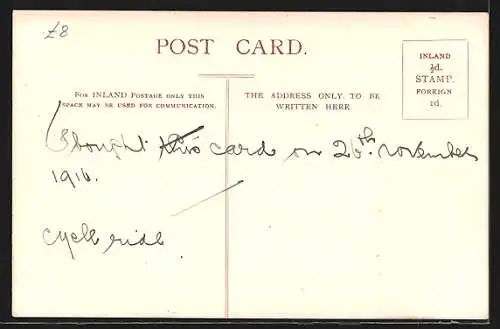 £8
POST CARD.
INLAND
½d.
STAMP.
FOREIGN
1d.
FOR INLAND POSTAGE ONLY THIS
SPACE MAY BE USED FOR COMMUNICATION.
THE ADDRESS ONLY TO BE
WRITTEN HERE
I bought this card on 26th. november
1916.
cycle ride